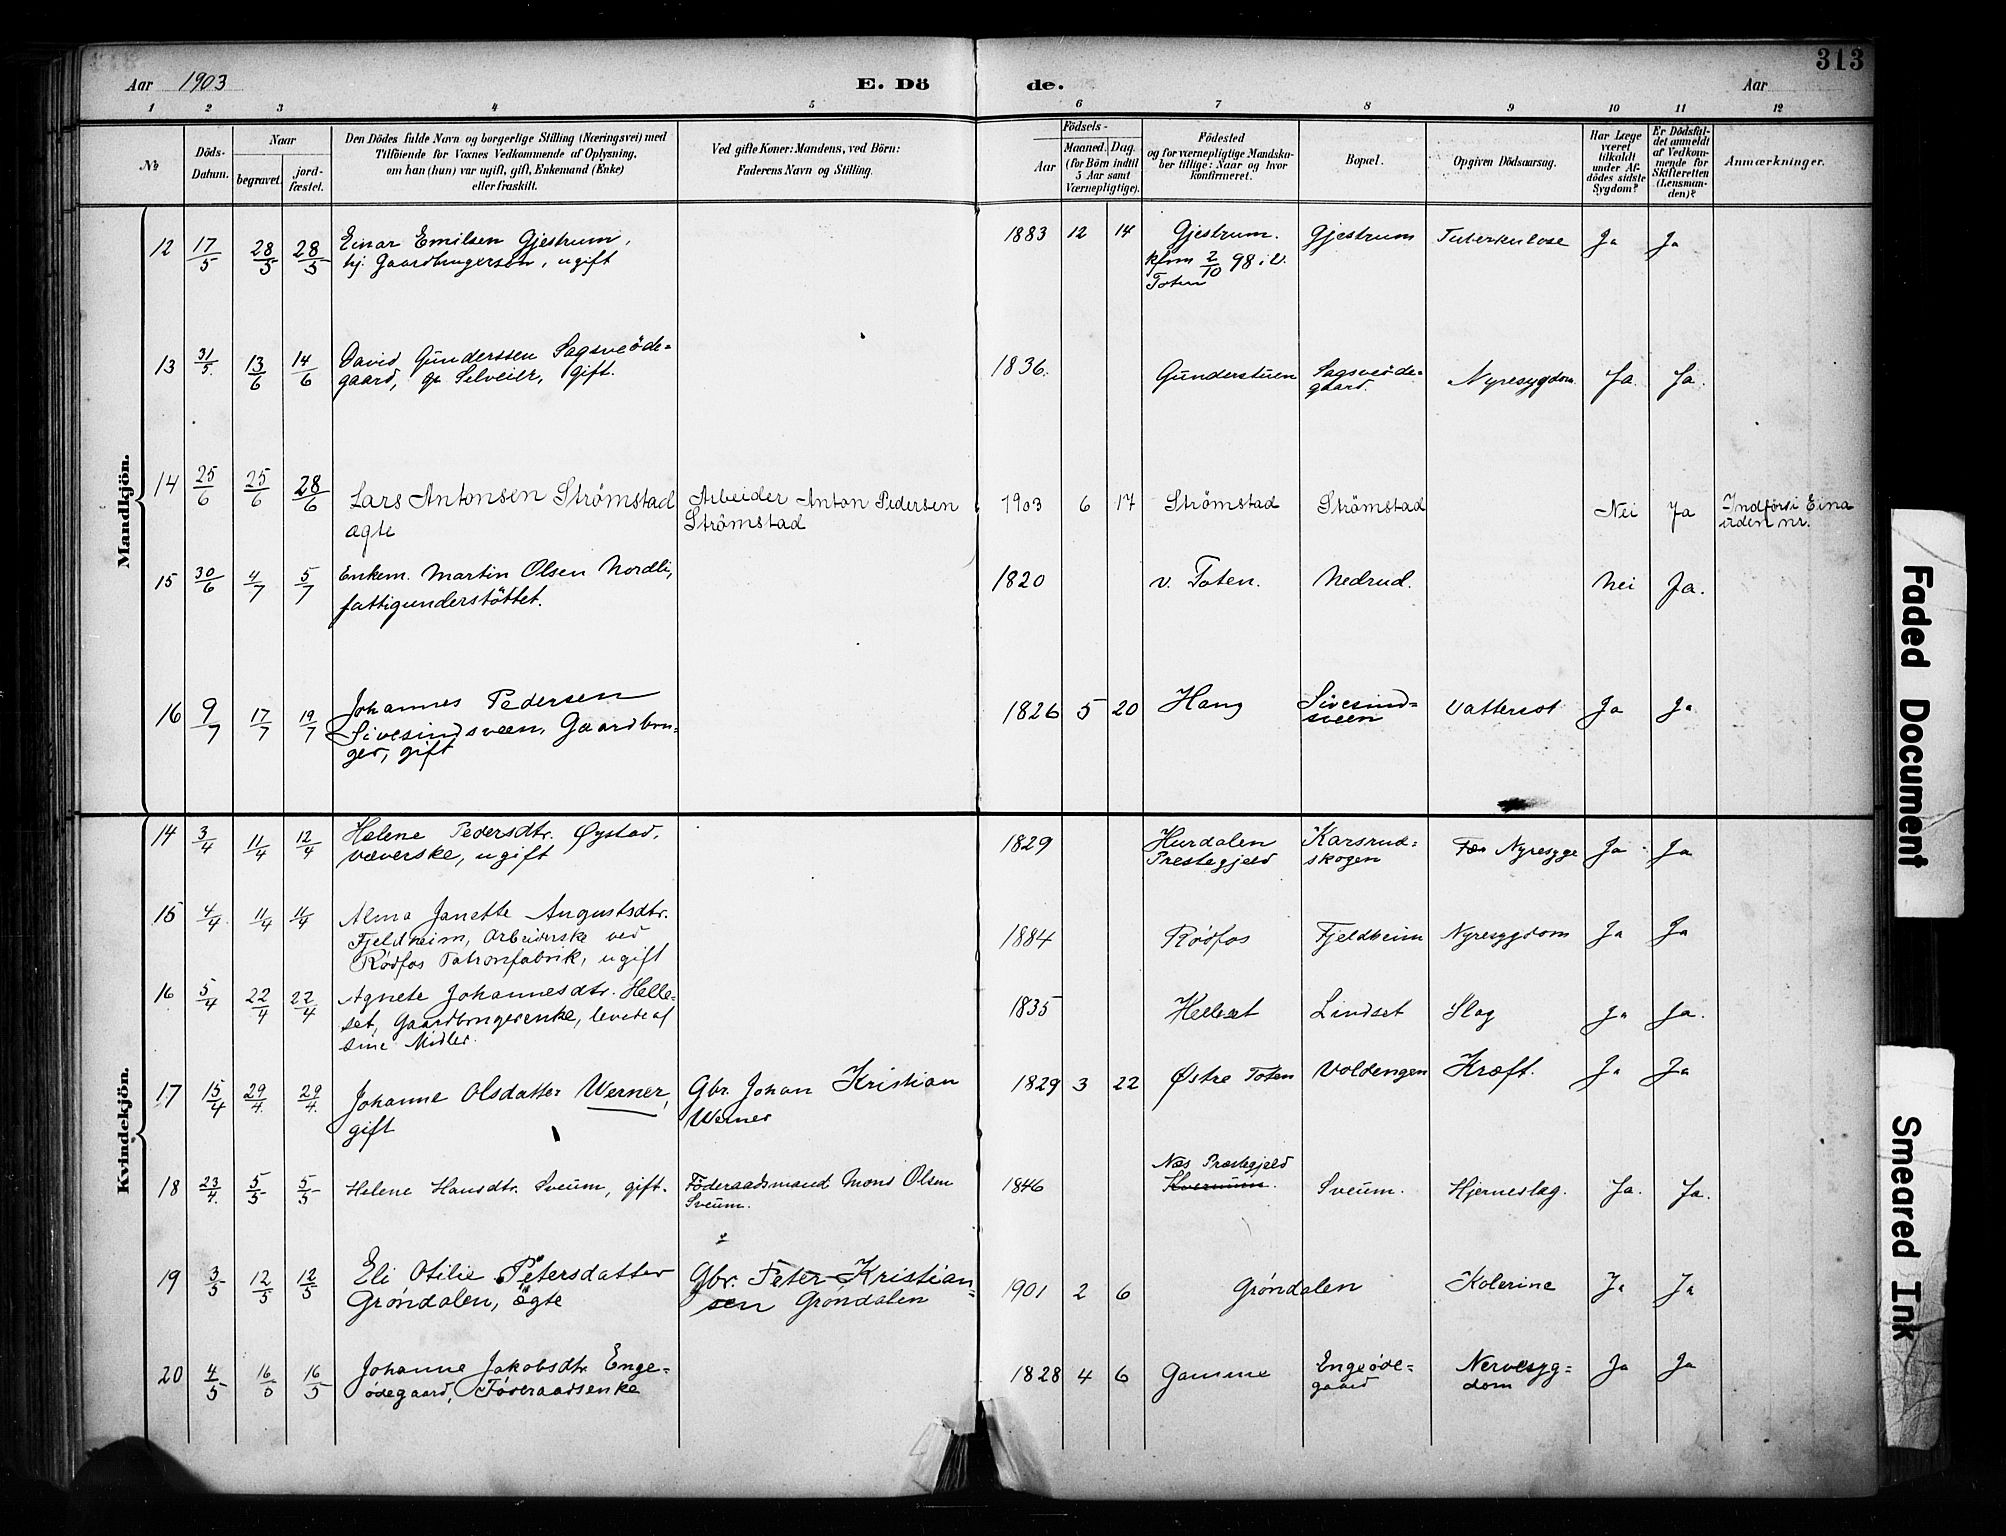 Aar 1903
E. Döde.
Aar
313
1 2 3 4 5 6 7 8 9 10 11 12
No
Döds-Datum.
Naar
begravet.
jord-fæstet.
Den Dödes fulde Navn og borgerlige Stilling (Næringsvei) med
Tilföiende for Voxnes Vedkommende af Oplysning,
om han (hun) var ugift, gift, Enkemand (Enke)
eller fraskilt.
Ved gifte Koner: Mandens, ved Börn:
Faderens Navn og Stilling.
Födsels-
Aar
Maaned. Dag.
(for Börn indtil
5 Aar samt
Værnepligtige).
Födested
og for værnepligtige Mandska-
ber tillige: Naar og hvor
konfirmeret.
Bopæl.
Opgiven Dödsaarsag.
Har Læge
været
tilkaldt
under Af-
dödes sidste
Sygdom?
Er Dödsfal-
det anmeldt
af Vedkom-
mende for
Skifteretten
(Lensman-
den)?
Anmærkninger.
Mandkjön.
12 17/5 28/5 28/5 Einar Emilsen Gjestrum, 1883 12 14 Gjestrum. Gjestrum Tuberkulose Ja Ja
hj. Gaardbrugersøn, ugift
kfrm 2/10 98 i V.
Toten
13 31/5. 13/6 14/6 David Gunderssen Sagsveöde- 1836. Gunderstuen Sagsveøde- Nyresygdom. Ja. Ja.
gaard, gift.
gaard.
14 25/6 25/6 28/6 Lars Antonsen Strömstad Arbeider Anton Pedersen 1903 6 17 Strömstad Strömstad Nei Ja Indförs i Eina
ægte Strömstad uden nr.
15 30/6 4/7 5/7 Enkem. Martin Olsen Nordli, 1820 v. Toten. Nedrud. Nei Ja.
fattigunderstöttet.
16 9/7 17/7 19/7 Johannes Pedersen 1826 5 20 Haug Sivesind- Vattersot Ja Ja
Sivesindsveen, Gaardbru- sveen
ger, gift
Kvindekjön.
14 3/4 11/4 12/4 Helene Pedersdtr. Øystad, 1829 Hurdalen Karsrud- Nyresyge Ja Ja
væverske, ugift Prestegjeld skogen
15 4/4 11/4 11/4 Alma Janette Augustsdtr. 1884 Rødfos Fjeldheim Nyresygdom Ja Ja
Fjeldheim, Arbeiderske ved
Rødfos Patronfabrik, ugift
16 5/4 22/4 22/4 Agnete Johannesdtr. Helle- 1835 Helleset Lindset Slag Ja Ja.
set, Gaardbrugerenke, levede af
sine Midler.
17 15/4 29/4. 29/4. Johanne Olsdatter Werner, Gbr. Johan Kristian 1829 3 22 Østre Toten Voldengen Kræft. Ja Ja
gift Werner
18 23/4. 5/5 5/5 Helene Hansdtr. Sveum, gift. Föderaadsmand Mons Olsen 1846 Næs Præstegjeld Sveum. Hjerneslag. Ja. Ja.
Sveum. Kvernum.
19 3/5 12/5 12/5 Eli Otilie Petersdatter Gbr. Peter Kristian- 1901 2 6 Grøndalen Kolerine Ja Ja
Grøndalen, ægte sen Grøndalen
20 4/5 16/5 16/5 Johanne Jakobsdtr. Enge- 1828 4 6 Gamme Engeøde- Nervesyg- Ja Ja
ødegaard, Føderaadsenke gaard dom
Faded Document
Smeared Ink